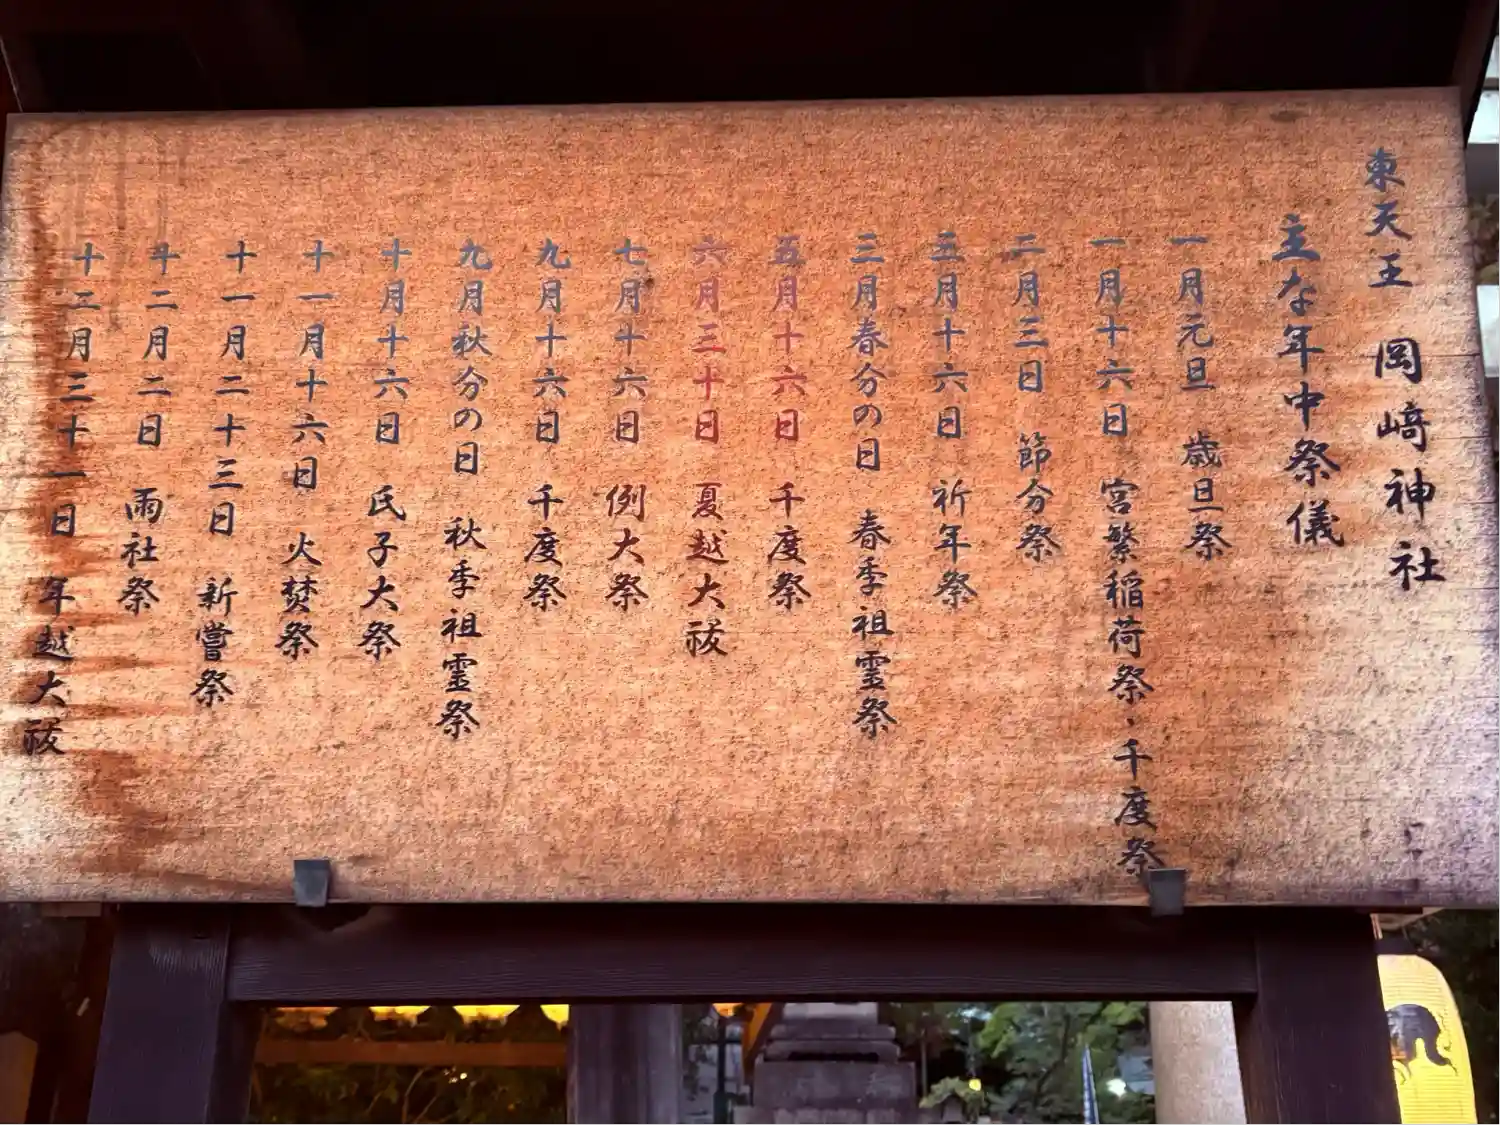 東天王 岡﨑神社
主な年中祭儀
一月元旦 歳旦祭
一月十六日 宮繁稲荷祭・千度祭
二月三日 節分祭
五月十六日 祈年祭
三月春分の日 春季祖霊祭
五月十六日 千度祭
六月三十日 夏越大祓
七月十六日 例大祭
九月十六日 千度祭
九月秋分の日 秋季祖霊祭
十月十六日 氏子大祭
十一月十六日 火焚祭
十一月二十三日 新嘗祭
十二月二日 雨社祭
十二月三十一日 年越大祓